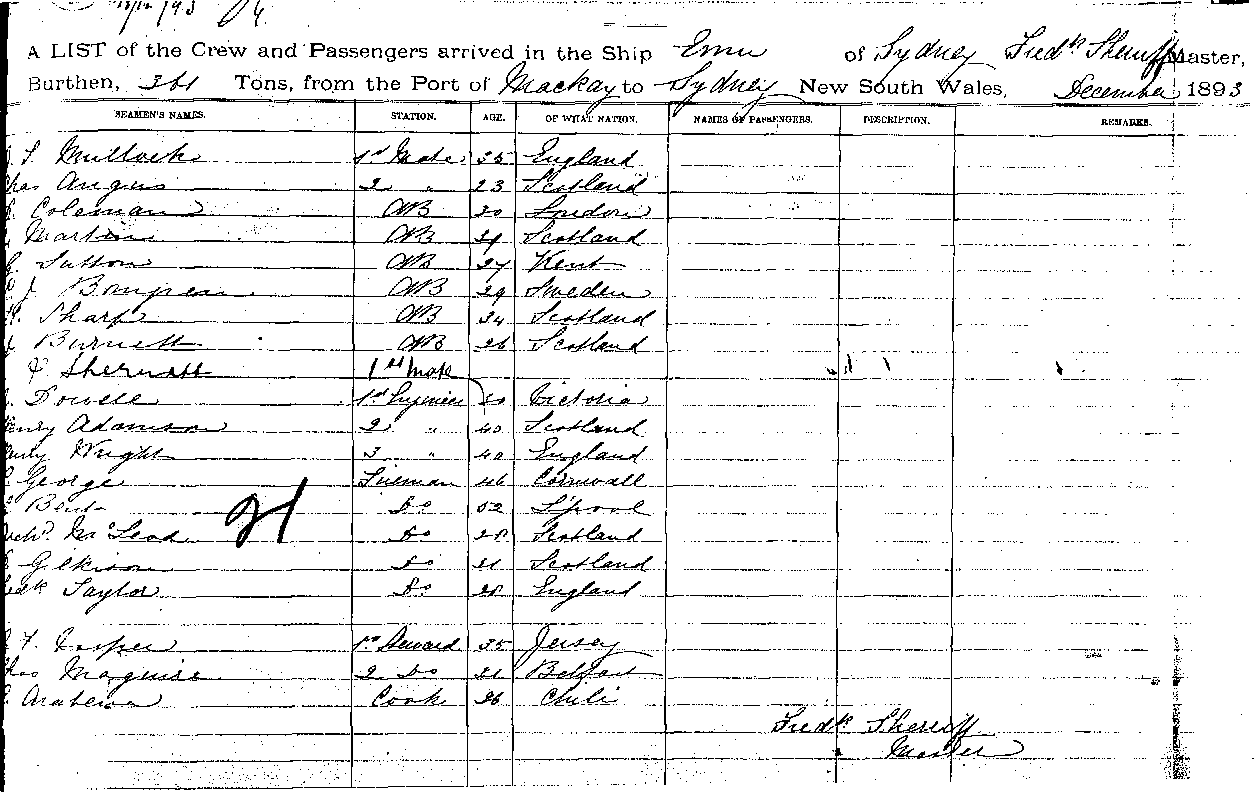 A LIST of the Crew and Passengers arrived in the Ship Emu of Sydney Fredk Sheriff Master,
Burthen, 361 Tons, from the Port of Mackay to Sydney New South Wales, December 1893
SEAMEN'S NAMES. STATION. AGE. OF WHAT NATION. NAMES OF PASSENGERS. DESCRIPTION. REMARKS.
Mullock 1st Mate 35 England
Chas Angus 2 " 23 Scotland
Coleman AB 30 London
Martin AB 29 Scotland
Sutton AB 27 Kent
J AB 29 Sweden
Sharp AB 34 Scotland
Burnett AB 26 Scotland
1st Mate
Dowell 1st Engineer Victoria
Henry Adamson 2 " 40 Scotland
Wright 3 " 40 England
George Fireman 46 Cornwall
Bent Do 52 L'pool
McLeod Do 28 Scotland
Gilkison Do Scotland
Fredk Taylor Do 28 England
1st Steward 35 Jersey
Chas Maguire 2 Do Belfast
Cook 26 Chili
21
Fredk Sheriff
Master